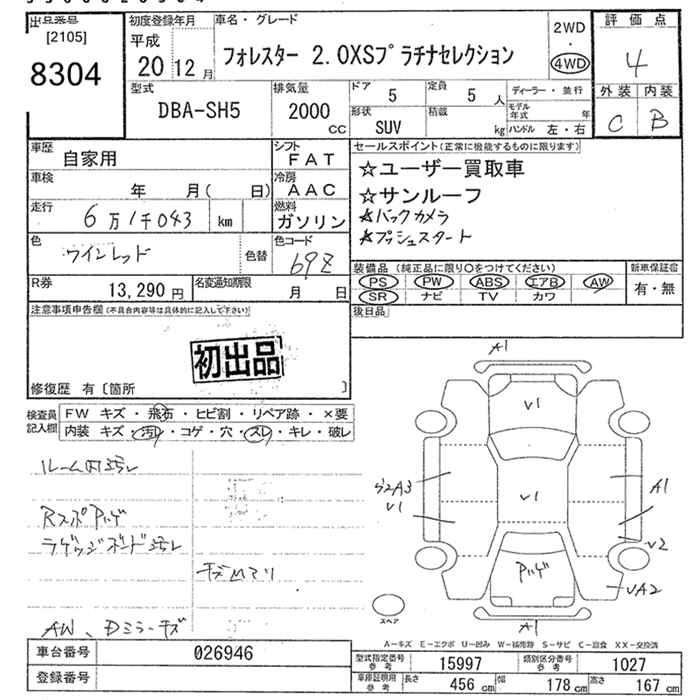 出品番号
[2105]
8304
初度登録年月
平成
20 12 月
車名・グレード
フォレスター 2.0XSプラチナセレクション
2WD
・
4WD
評価点
4
外装 内装
C B
型式
DBA-SH5
排気量
2000
cc
ドア 5
定員 5 人
形状 SUV
積載 kg
ディーラー・並行
モデル年式 年
ハンドル 左・右
車歴 自家用
シフト FAT
車検 年 月( 日)
冷房 AAC
走行 6万1千043 km
燃料 ガソリン
色 ワインレッド
色替
色コード 69Z
R券 13,290 円
名変通知期限 月 日
セールスポイント(正常に機能するものに限ります)
☆ユーザー買取車
☆サンルーフ
☆バックカメラ
☆プッシュスタート
装備品(純正品に限り○をつけてください)
PS PW ABS エアB AW
SR ナビ TV カワ
新車保証書
有・無
注意事項申告欄(不具合内容等は具体的に記入して下さい)
初出品
修復歴 有〔箇所 〕
後日品
検査員記入欄
FW キズ・飛石・ヒビ割・リペア跡・×要
内装 キズ・汚れ・コゲ・穴・スレ・キレ・破レ
ルーム内汚レ
Rスポ Pハゲ
ラゲッジボード汚レ
AW、Dミラーキズ
A1
V1
A3
V1
V1
A1
V2
Pハゲ
VA2
スペア
A1
A-キズ E-エクボ U-凹み W-補修跡 S-サビ C-腐食 XX-交換済
車台番号 026946
登録番号
型式指定番号参考 15997
類別区分番号参考 1027
車庫証明用参考 長さ 456 cm 幅 178 cm 高さ 167 cm